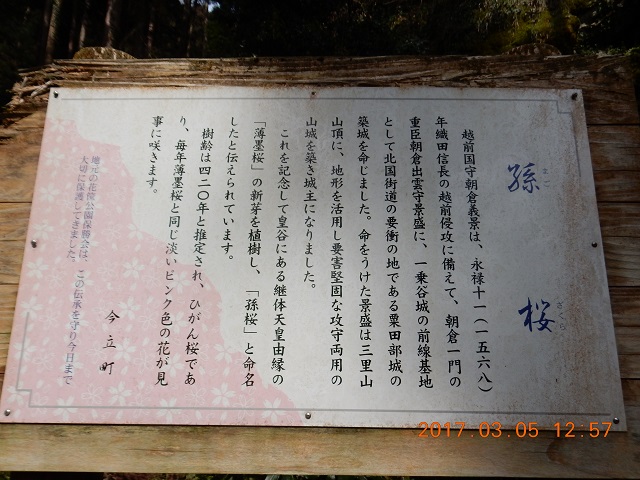 孫桜
まござくら
越前国守朝倉義景は、永禄十一(一五六八)
年織田信長の越前侵攻に備えて、朝倉一門の
重臣朝倉出雲守景盛に、一乗谷城の前線基地
として北国街道の要衝の地である粟田部城の
築城を命じました。命をうけた景盛は三里山
山頂に、地形を活用し要害堅固な攻守両用の
山城を築き城主になりました。
これを記念して皇谷にある継体天皇由縁の
「薄墨桜」の新芽を植樹し、「孫桜」と命名
したと伝えられています。
樹齢は四二〇年と推定され、ひがん桜であ
り、毎年薄墨桜と同じ淡いピンク色の花が見
事に咲きます。
今立町
地元の花筐公園保勝会は、この伝承を守り今日まで
大切に保護してきました。
2017.03.05 12:57